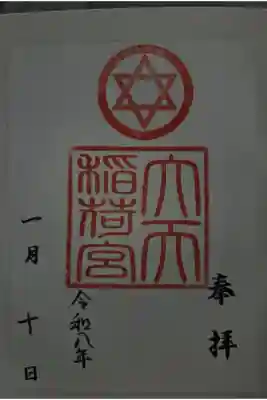 奉拝
天
稲荷宮
令和八年
一月十日